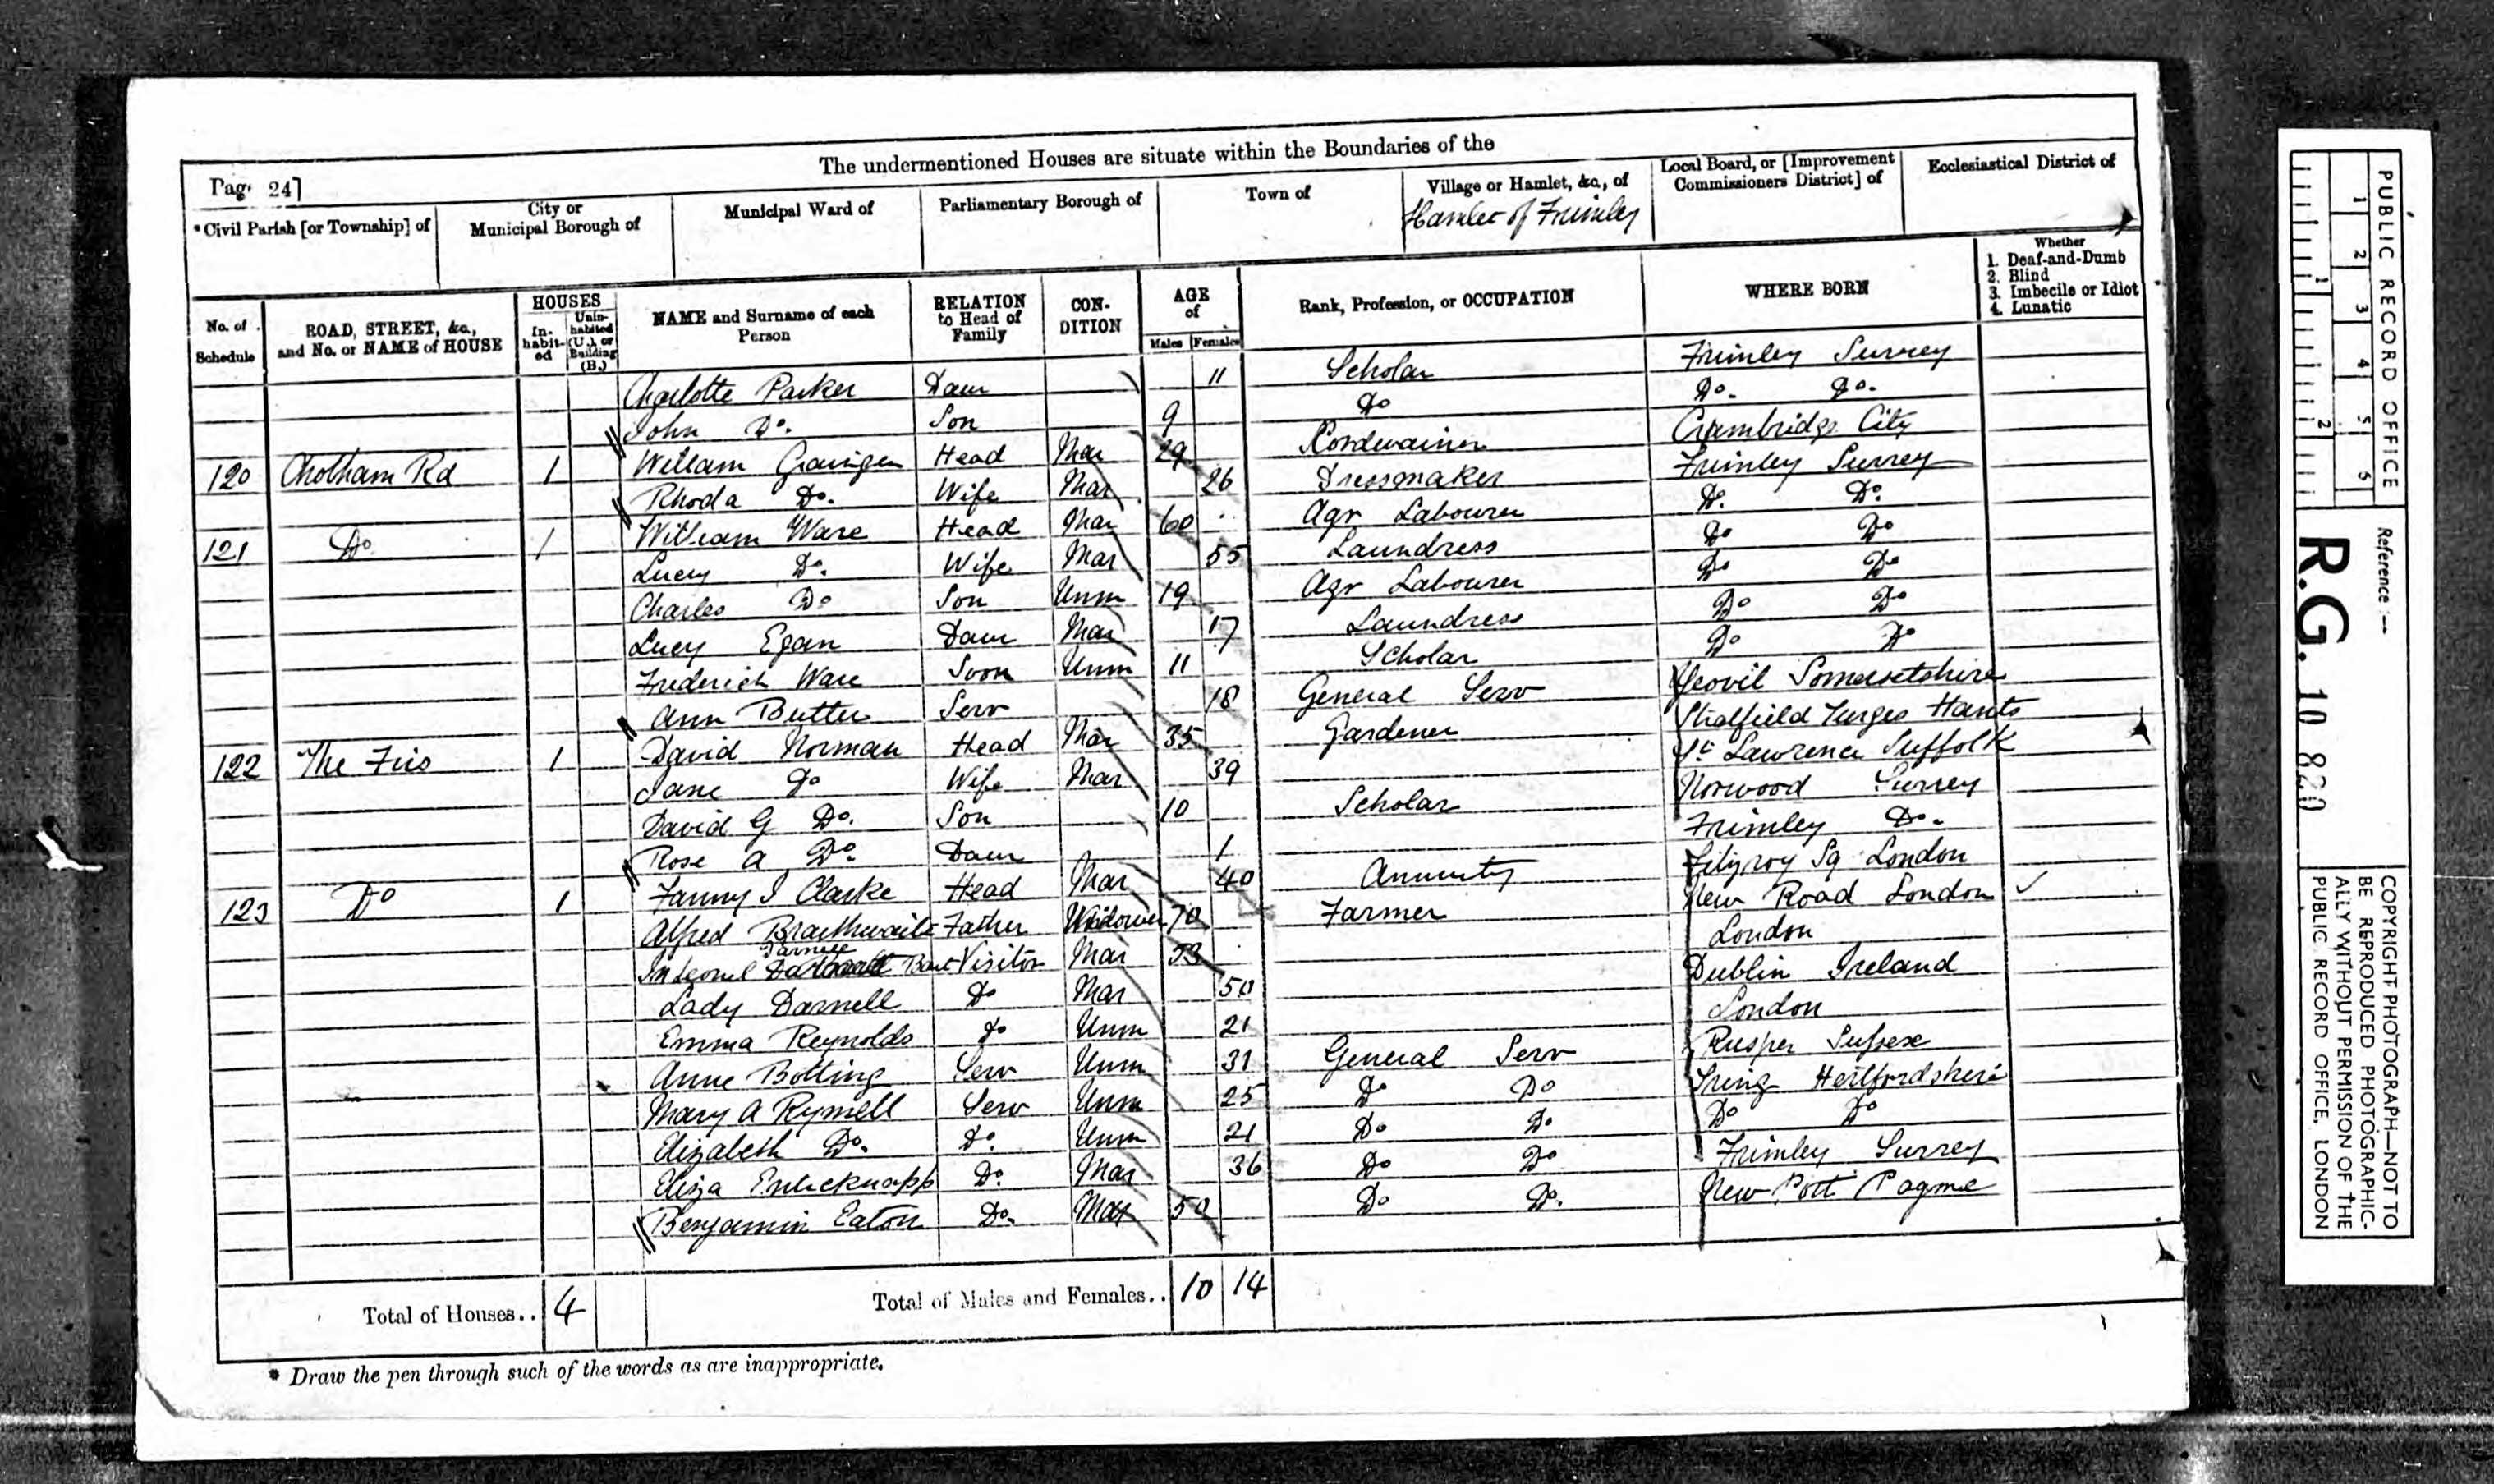 The undermentioned Houses are situate within the Boundaries of the
Page 24]
*Civil Parish [or Township] of
City or Municipal Borough of
Municipal Ward of
Parliamentary Borough of
Town of
Village or Hamlet, &c., of
Hamlet of Frimley
Local Board, or [Improvement Commissioners District] of
Ecclesiastical District of
No. of Schedule
ROAD, STREET, &c., and No. or NAME of HOUSE
HOUSES
In-habit-ed
Unin-habited (U.), or Building (B.)
NAME and Surname of each Person
RELATION to Head of Family
CON-DITION
AGE of
Males Females
Rank, Profession, or OCCUPATION
WHERE BORN
Whether
1. Deaf-and-Dumb
2. Blind
3. Imbecile or Idiot
4. Lunatic
Charlotte Parker Daur 11 Scholar Frimley Surrey
John Do. Son 9 Do Do. Do.
120 Chobham Rd 1 William Head Mar 29 Cordwainer City
Rhoda Do. Wife Mar 26 Dressmaker Frimley Surrey
121 Do 1 William Ware Head Mar 60 Agr Labourer Do. Do.
Lucy Do. Wife Mar 55 Laundress Do Do
Charles Do Son Unm 19 Agr Labourer Do Do
Lucy Egan Daur Mar 17 Laundress Do Do
Frederich Ware Soon Unm 11 Scholar Do Do
Ann Butter Serv 18 General Serv Yeovil Somersetshire
122 The Firs 1 David Norman Head Mar 35 Gardener Stratfield Turges Hants
Jane Do Wife Mar 39 St Lawrence Suffolk
David G Do. Son 10 Scholar Norwood Surrey
Rose A Do. Daur 1 Frimley Do.
123 Do 1 Fanny J Clarke Head Mar 40 Annuity Fitzroy Sq London
Alfred Braithwaite Father Widower 70 Farmer New Road London
Darnell Bart Visitor Mar 53 London
Lady Darnell Do Mar 50 Dublin Ireland
Emma Reynolds Do Unm 21 London
Anne Botting Serv Unm 31 General Serv Rusper Sussex
Mary A Rymell Serv Unm 25 Do Do Tring Hertfordshire
Elizabeth Do. Do. Unm 21 Do Do. Do Do
Eliza Do. Mar 36 Do Do Frimley Surrey
Benjamin Eaton Do. Mar 50 Do Do. New Port Pagme
Total of Houses.. 4
Total of Males and Females.. 10 14
* Draw the pen through such of the words as are inappropriate.
PUBLIC RECORD OFFICE
1 2 3 4 5 6
1 2
Reference :—
R.G. 10 820
COPYRIGHT PHOTOGRAPH—NOT TO
BE REPRODUCED PHOTOGRAPHIC-
ALLY WITHOUT PERMISSION OF THE
PUBLIC RECORD OFFICE, LONDON